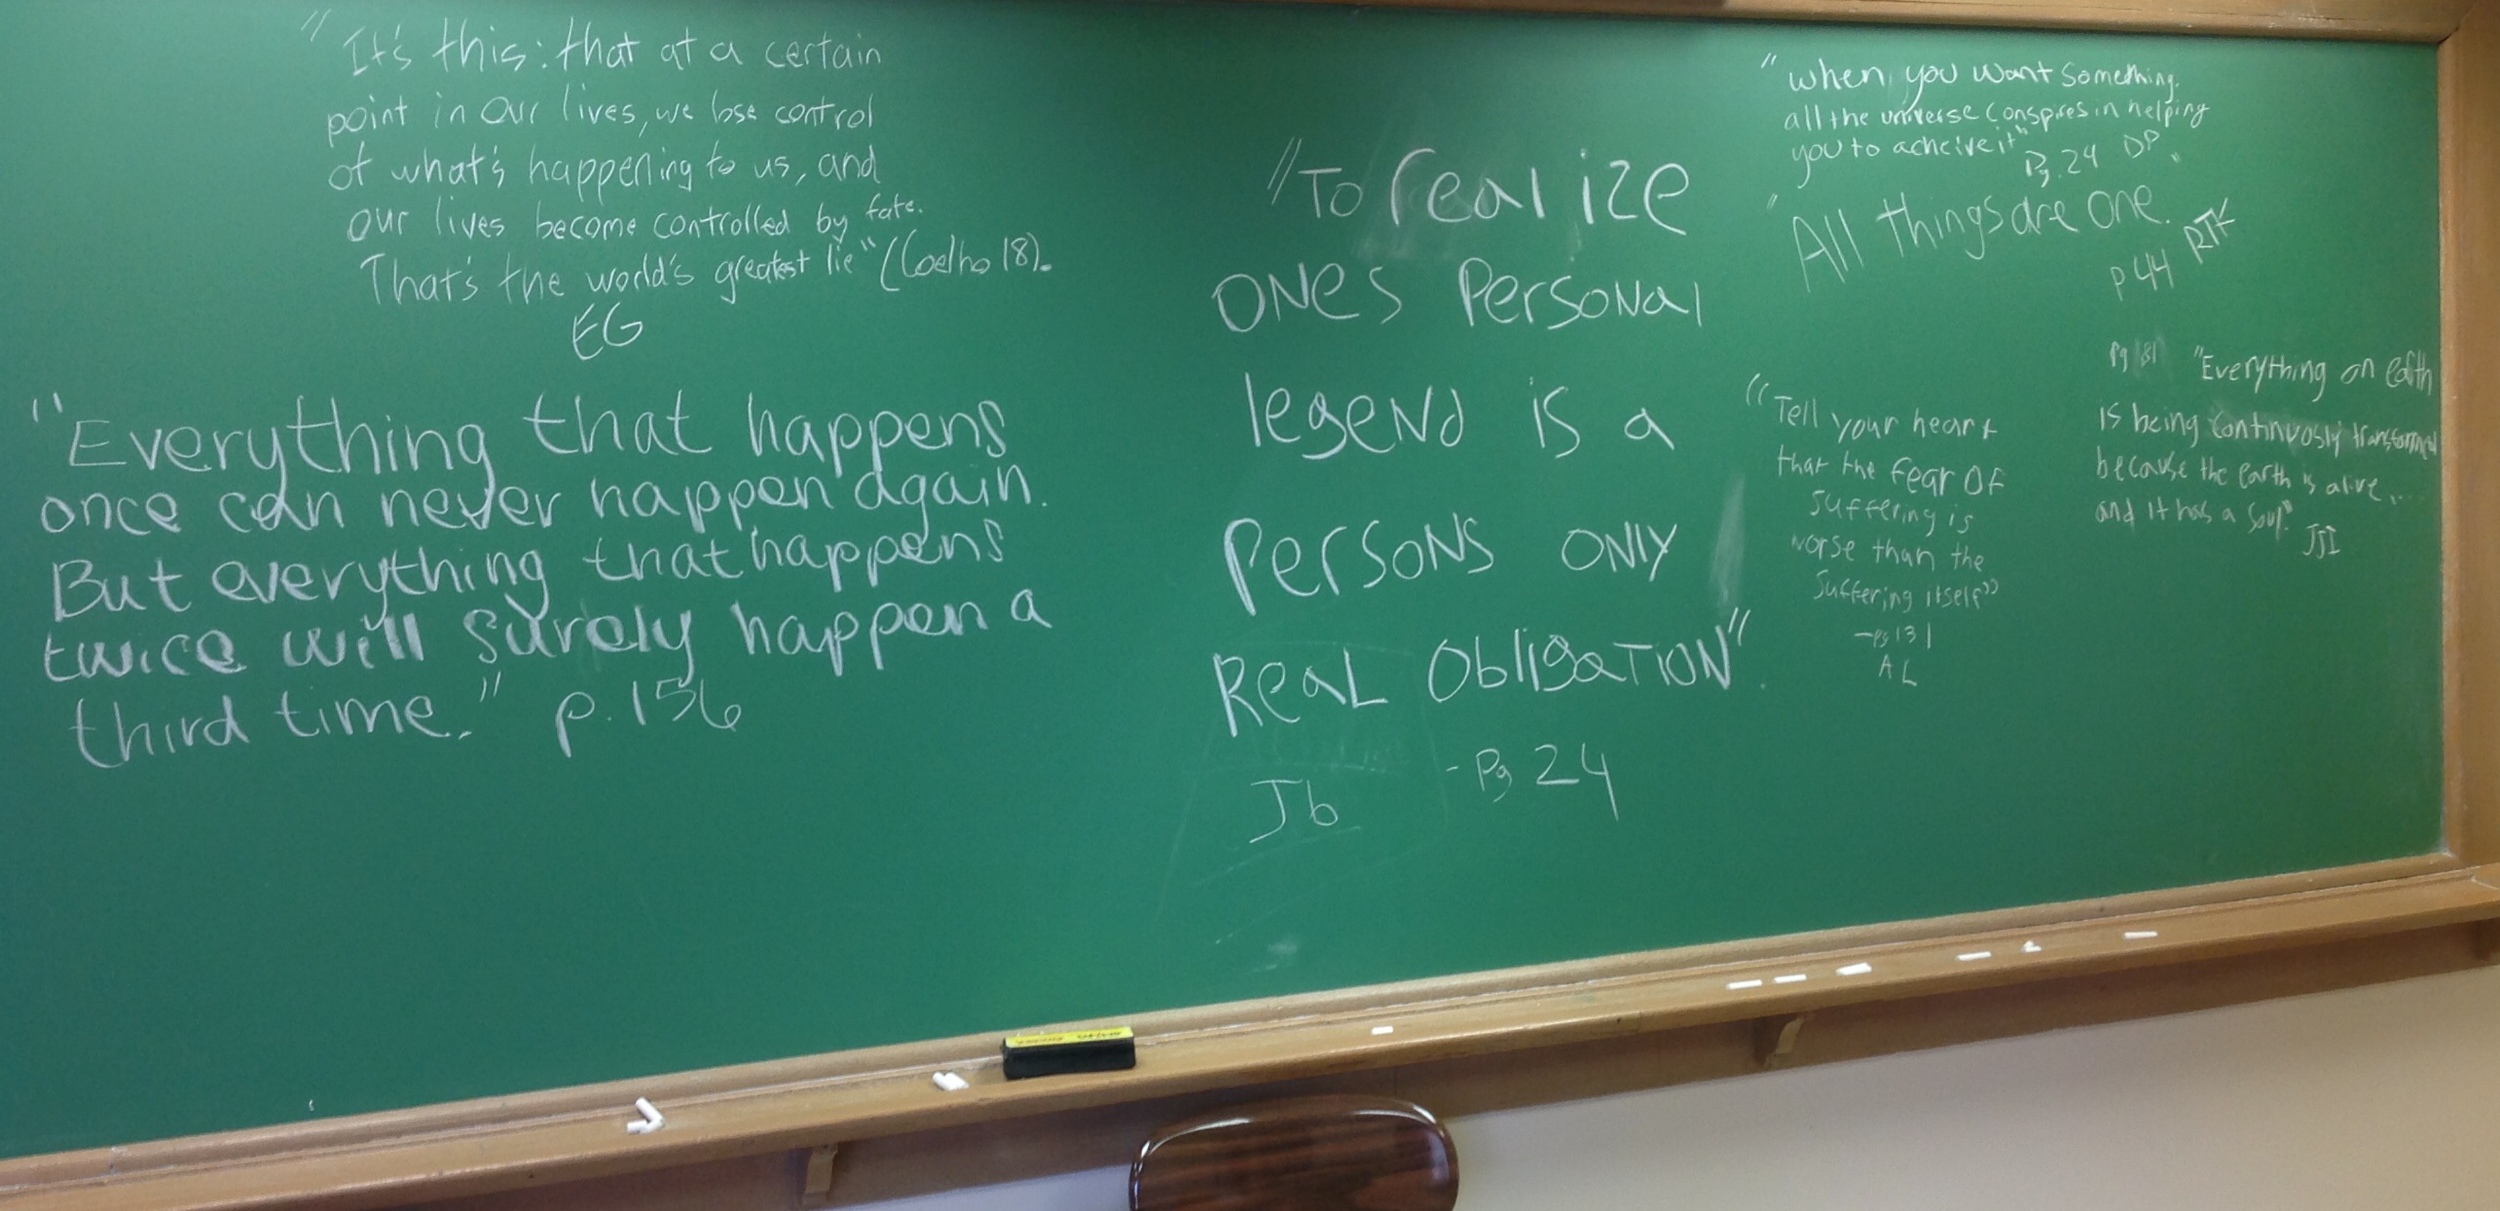 "It's this: that at a certain
point in our lives, we lose control
of what's happening to us, and
our lives become controlled by fate.
That's the world's greatest lie" (Coelho 18).
EG
"Everything that happens
once can never happen again.
But everything that happens
twice will surely happen a
third time." p. 156
"To realize
ones personal
legend is a
persons only
Real Obligation".
Jb - Pg 24
"when you want something,
all the universe conspires in helping
you to acheive it" Pg. 24 DP
"All things are one."
p 44 RTK
"Tell your heart
that the fear of
suffering is
worse than the
suffering itself"
-pg 131
AL
Pg 81 "Everything on earth
is being continuosly transformed
because the earth is alive....
and it has a soul." JJI